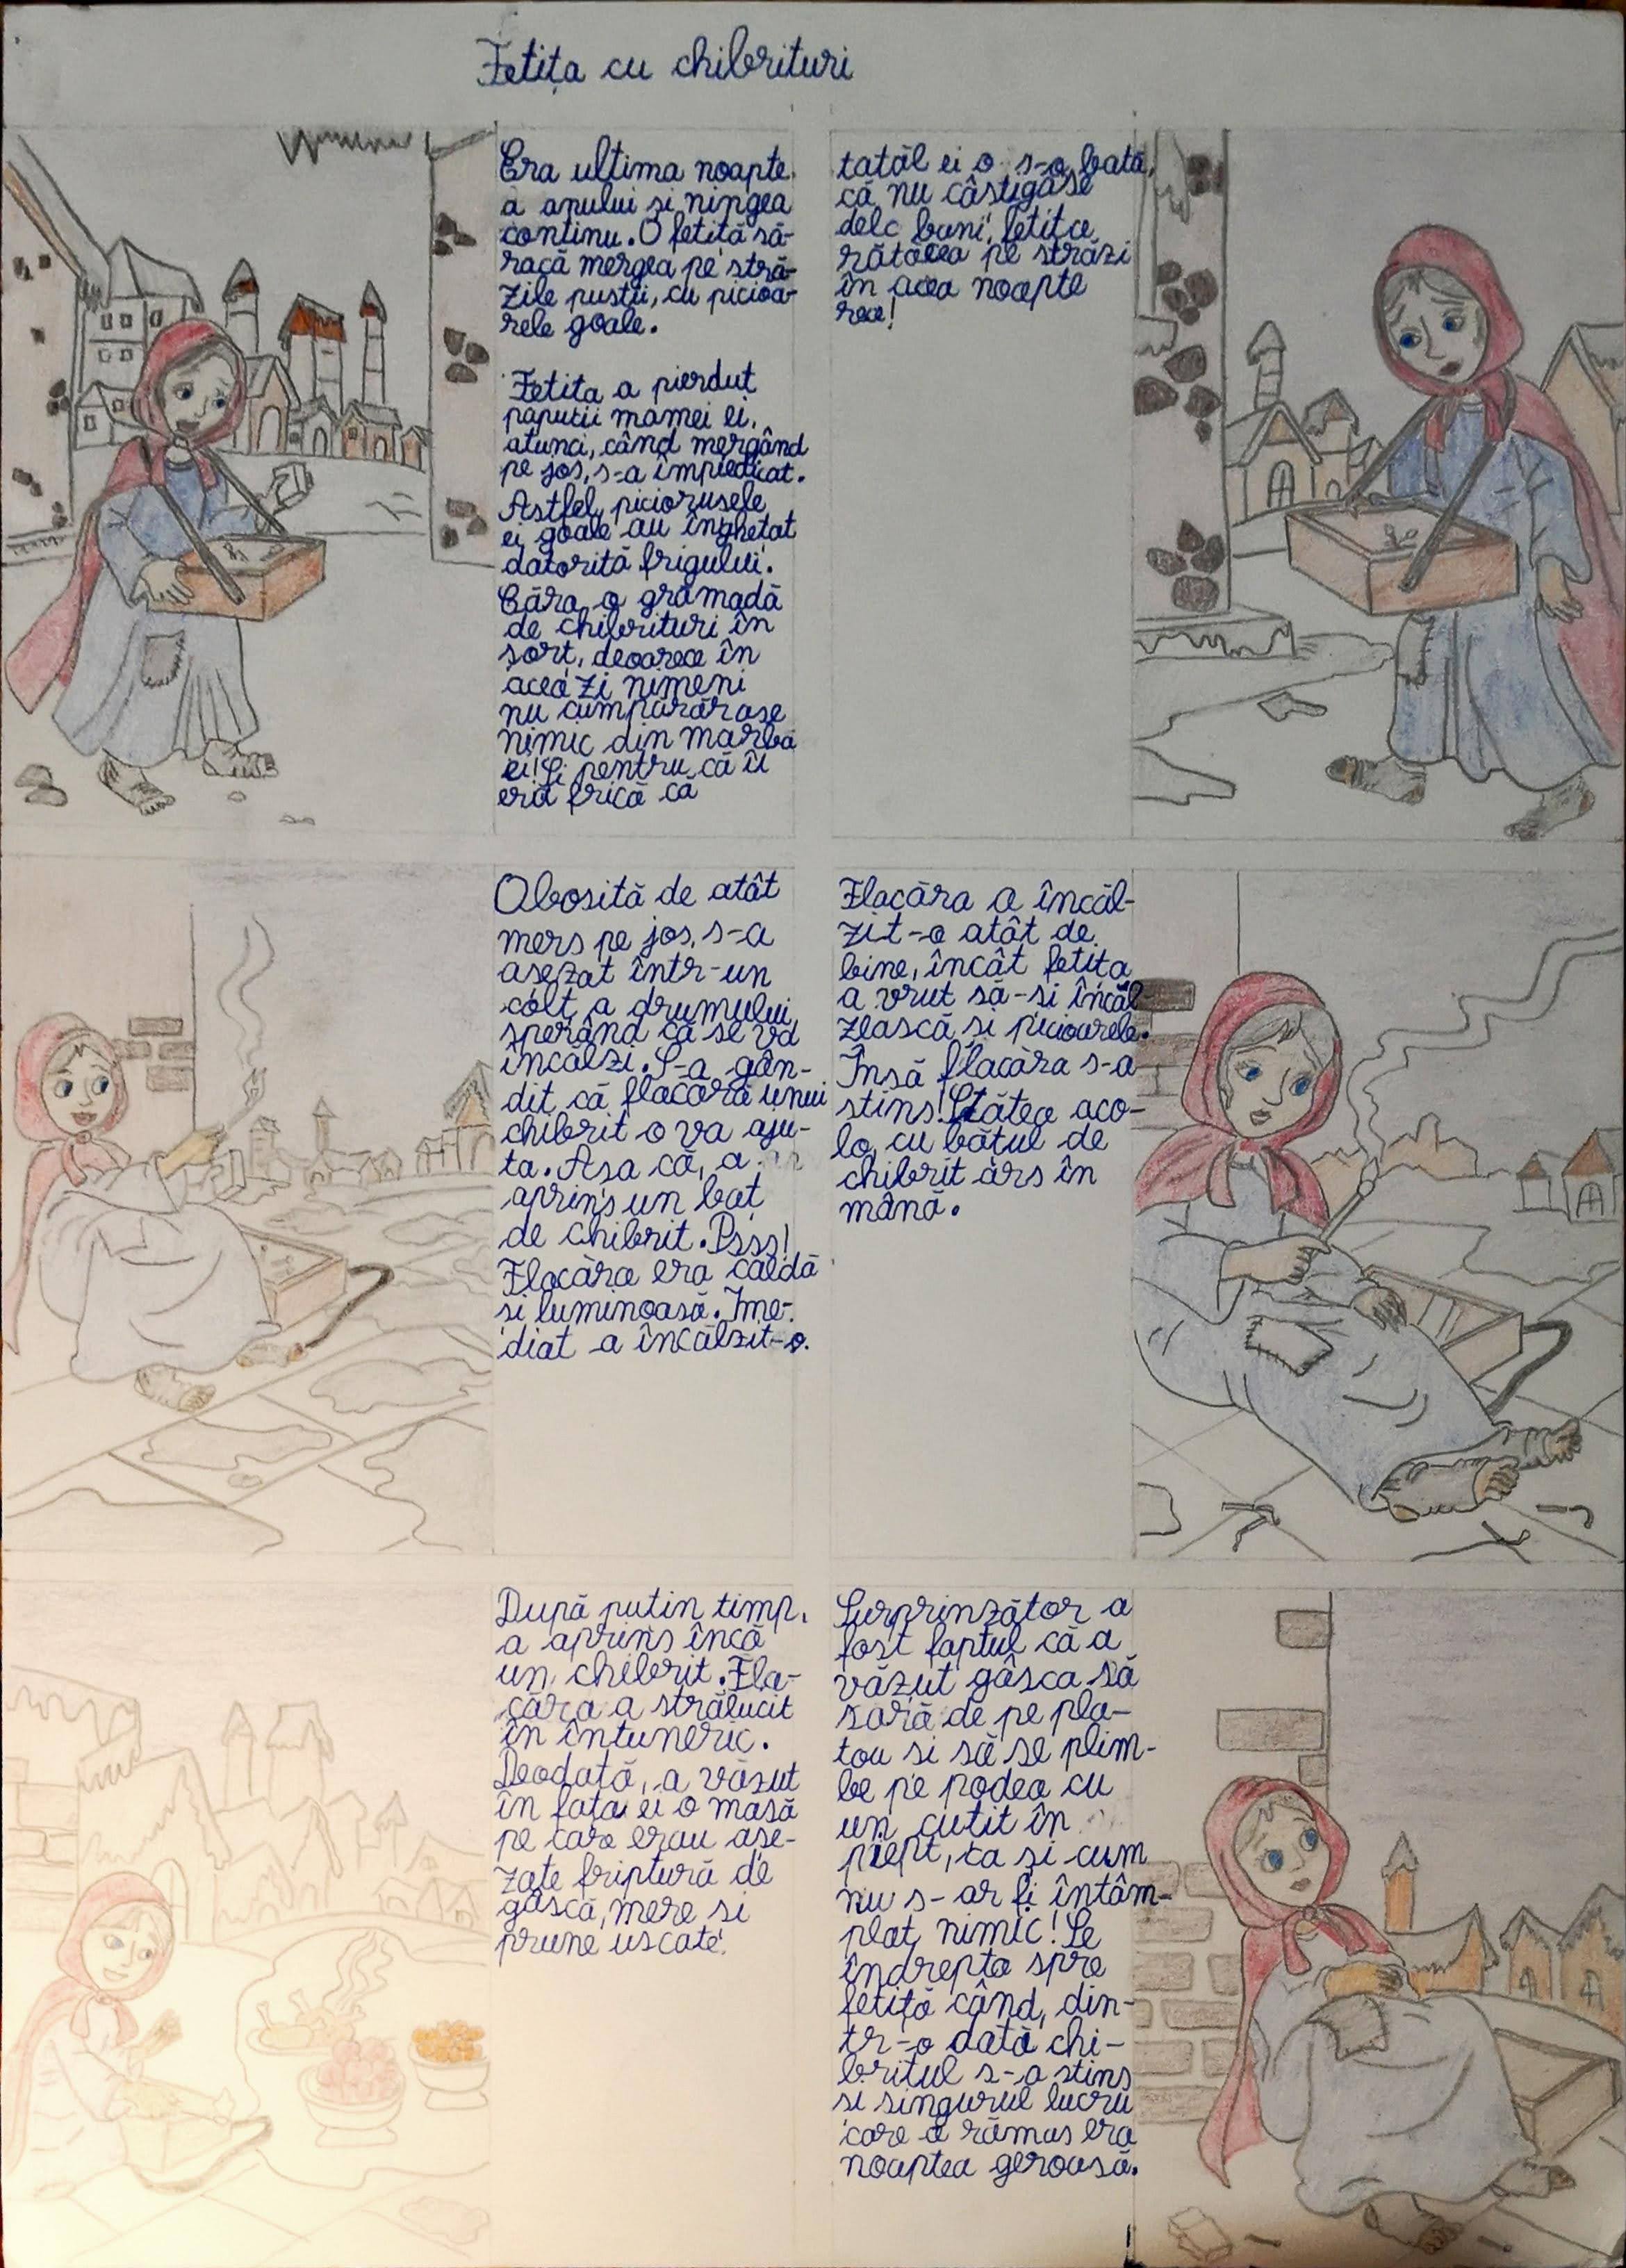 Fetița cu chibrituri
Era ultima noapte
a anului si ningea
continu. O fetită să-
racă mergea pe stră-
zile pustii, cu picioa-
rele goale.
Fetita a pierdut
papucii mamei ei,
atunci, când mergând
pe jos, s-a împiedicat.
Astfel, piciorusele
ei goale au înghetat
datorită frigului.
Căra o grămadă
de chibrituri în
sort, deoarece în
acea zi nimeni
nu cumpărărase
nimic din marba
ei! Si pentru că îi
era frică că
tatăl ei o s-o bată,
că nu câstigase
deloc bani, fetita
rătăcea pe străzi
în acea noapte
rece!
Obosită de atât
mers pe jos, s-a
asezat într-un
colt a drumului
sperând că se va
încălzi. S-a gân-
dit că flacăra unui
chibrit o va aju-
ta. Asa că, a
aprins un bat
de chibrit. Psss!
Flacăra era caldă
si luminoasă. Ime-
diat a încălzit-o.
Flacăra a încăl-
zit-o atât de
bine, încât fetita
a vrut să-si încăl-
zească si picioarele.
Însă flacăra s-a
stins! Stătea aco-
lo, cu bătul de
chibrit ars în
mână.
După putin timp,
a aprins încă
un chibrit. Fla-
căra a strălucit
în întuneric.
Deodată, a văzut
în fata ei o masă
pe care erau ase-
zate friptură de
gâscă, mere si
prune uscate.
Surprinzător a
fost faptul că a
văzut gâsca să
sară de pe pla-
tou si să se plim-
be pe podea cu
un cutit în
piept, ca si cum
nu s-ar fi întâm-
plat nimic! Se
îndrepta spre
fetită când, din-
tr-o dată chi-
britul s-a stins
si singurul lucru
care a rămas era
noaptea geroasă.